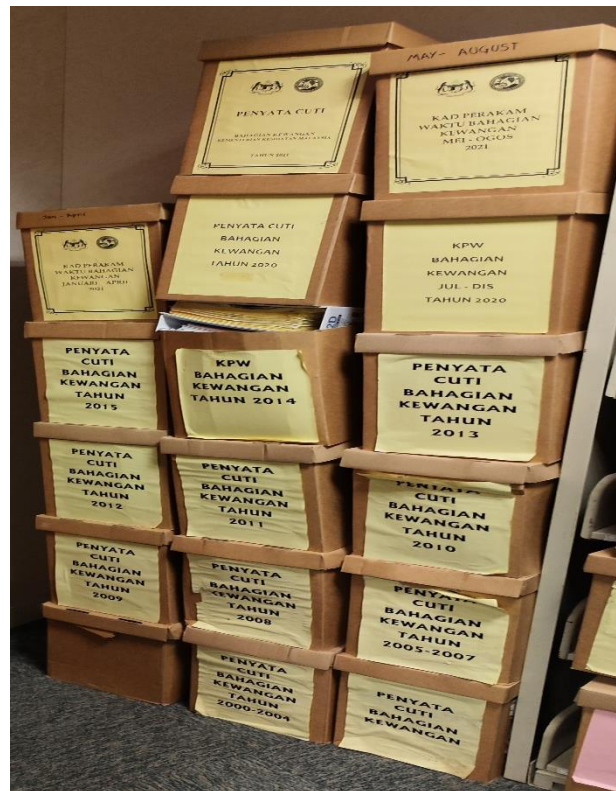 JAN - APRIL
KAD PERAKAM
WAKTU BAHAGIAN
KEWANGAN
JANUARI - APRIL
2021
PENYATA
CUTI
BAHAGIAN
KEWANGAN
TAHUN
2015
PENYATA
CUTI
BAHAGIAN
KEWANGAN
TAHUN
2012
PENYATA
CUTI
BAHAGIAN
KEWANGAN
TAHUN
2009
PENYATA CUTI
BAHAGIAN KEWANGAN
KEMENTERIAN KESIHATAN MALAYSIA
TAHUN 2021
PENYATA CUTI
BAHAGIAN
KEWANGAN
TAHUN 2020
KPW
BAHAGIAN
KEWANGAN
TAHUN 2014
PENYATA
CUTI
BAHAGIAN
KEWANGAN
TAHUN
2011
PENYATA
CUTI
BAHAGIAN
KEWANGAN
TAHUN
2008
PENYATA
CUTI
BAHAGIAN
KEWANGAN
TAHUN
2000-2004
MAY - AUGUST
KAD PERAKAM
WAKTU BAHAGIAN
KEWANGAN
MEI - OGOS
2021
KPW
BAHAGIAN
KEWANGAN
JUL - DIS
TAHUN 2020
PENYATA
CUTI
BAHAGIAN
KEWANGAN
TAHUN
2013
PENYATA
CUTI
BAHAGIAN
KEWANGAN
TAHUN
2010
PENYATA
CUTI
BAHAGIAN
KEWANGAN
TAHUN
2005-2007
PENYATA
CUTI
BAHAGIAN
KEWANGAN